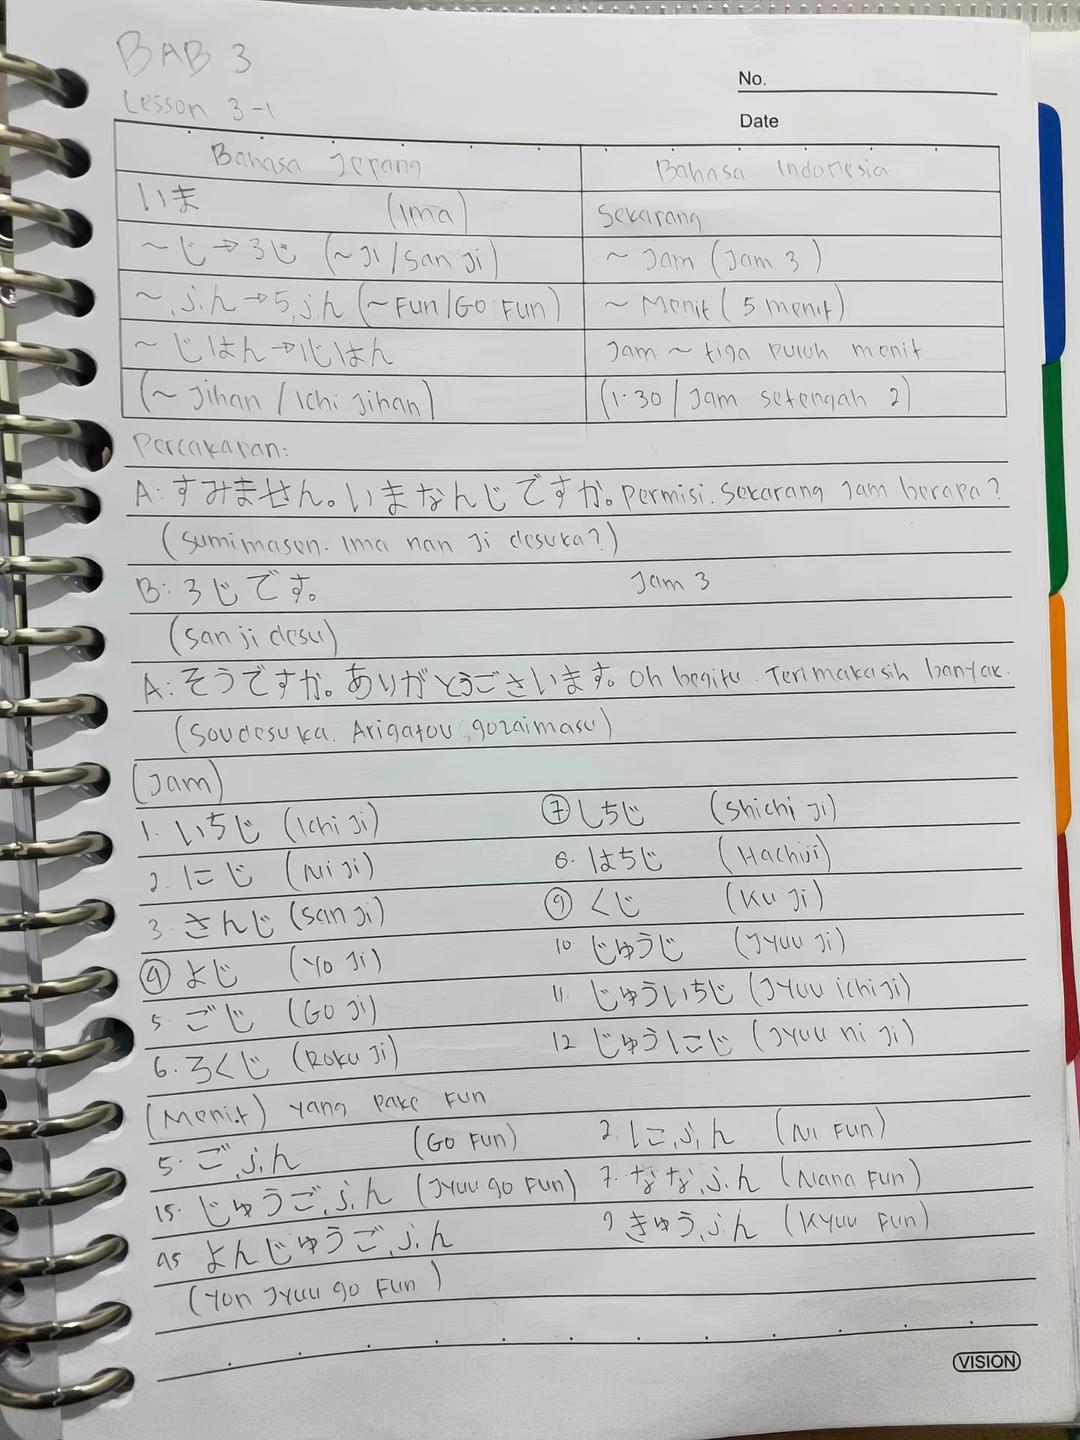 BAB 3
No.
Lesson 3-1
Date
Bahasa Jepang Bahasa Indonesia
いま (Ima) Sekarang
~じ→3じ (~Ji/San Ji) ~ Jam (Jam 3)
~ふん→5ふん (~Fun/Go Fun) ~ Menit (5 menit)
~じはん→1じはん Jam ~ tiga puluh menit
(~ Jihan / Ichi Jihan) (1.30 / Jam setengah 2)
Percakapan:
A: すみません。いまなんじですか。Permisi. Sekarang Jam berapa?
(Sumimasen. Ima nan Ji desuka?)
B: 3じです。 Jam 3
(San ji desu)
A: そうですか。ありがとうございます。Oh begitu. Terimakasih banyak.
(Soudesuka. Arigatou gozaimasu)
(Jam)
1. いちじ (Ichi Ji) 7. しちじ (Shichi Ji)
2. にじ (Ni Ji) 8. はちじ (Hachiji)
3. さんじ (San Ji) 9 くじ (Ku Ji)
4 よじ (Yo Ji) 10. じゅうじ (Jyuu Ji)
5. ごじ (Go Ji) 11. じゅういちじ (Jyuu ichi ji)
6. ろくじ (Roku Ji) 12 じゅうにじ (Jyuu ni Ji)
(Menit) Yang Pake Fun
5. ごふん (Go Fun) 2. にふん (Ni Fun)
15. じゅうごふん (Jyuu go Fun) 7. ななふん (Nana Fun)
45 よんじゅうごふん 9 きゅうふん (Kyuu Fun)
(Yon Jyuu go Fun)
VISION